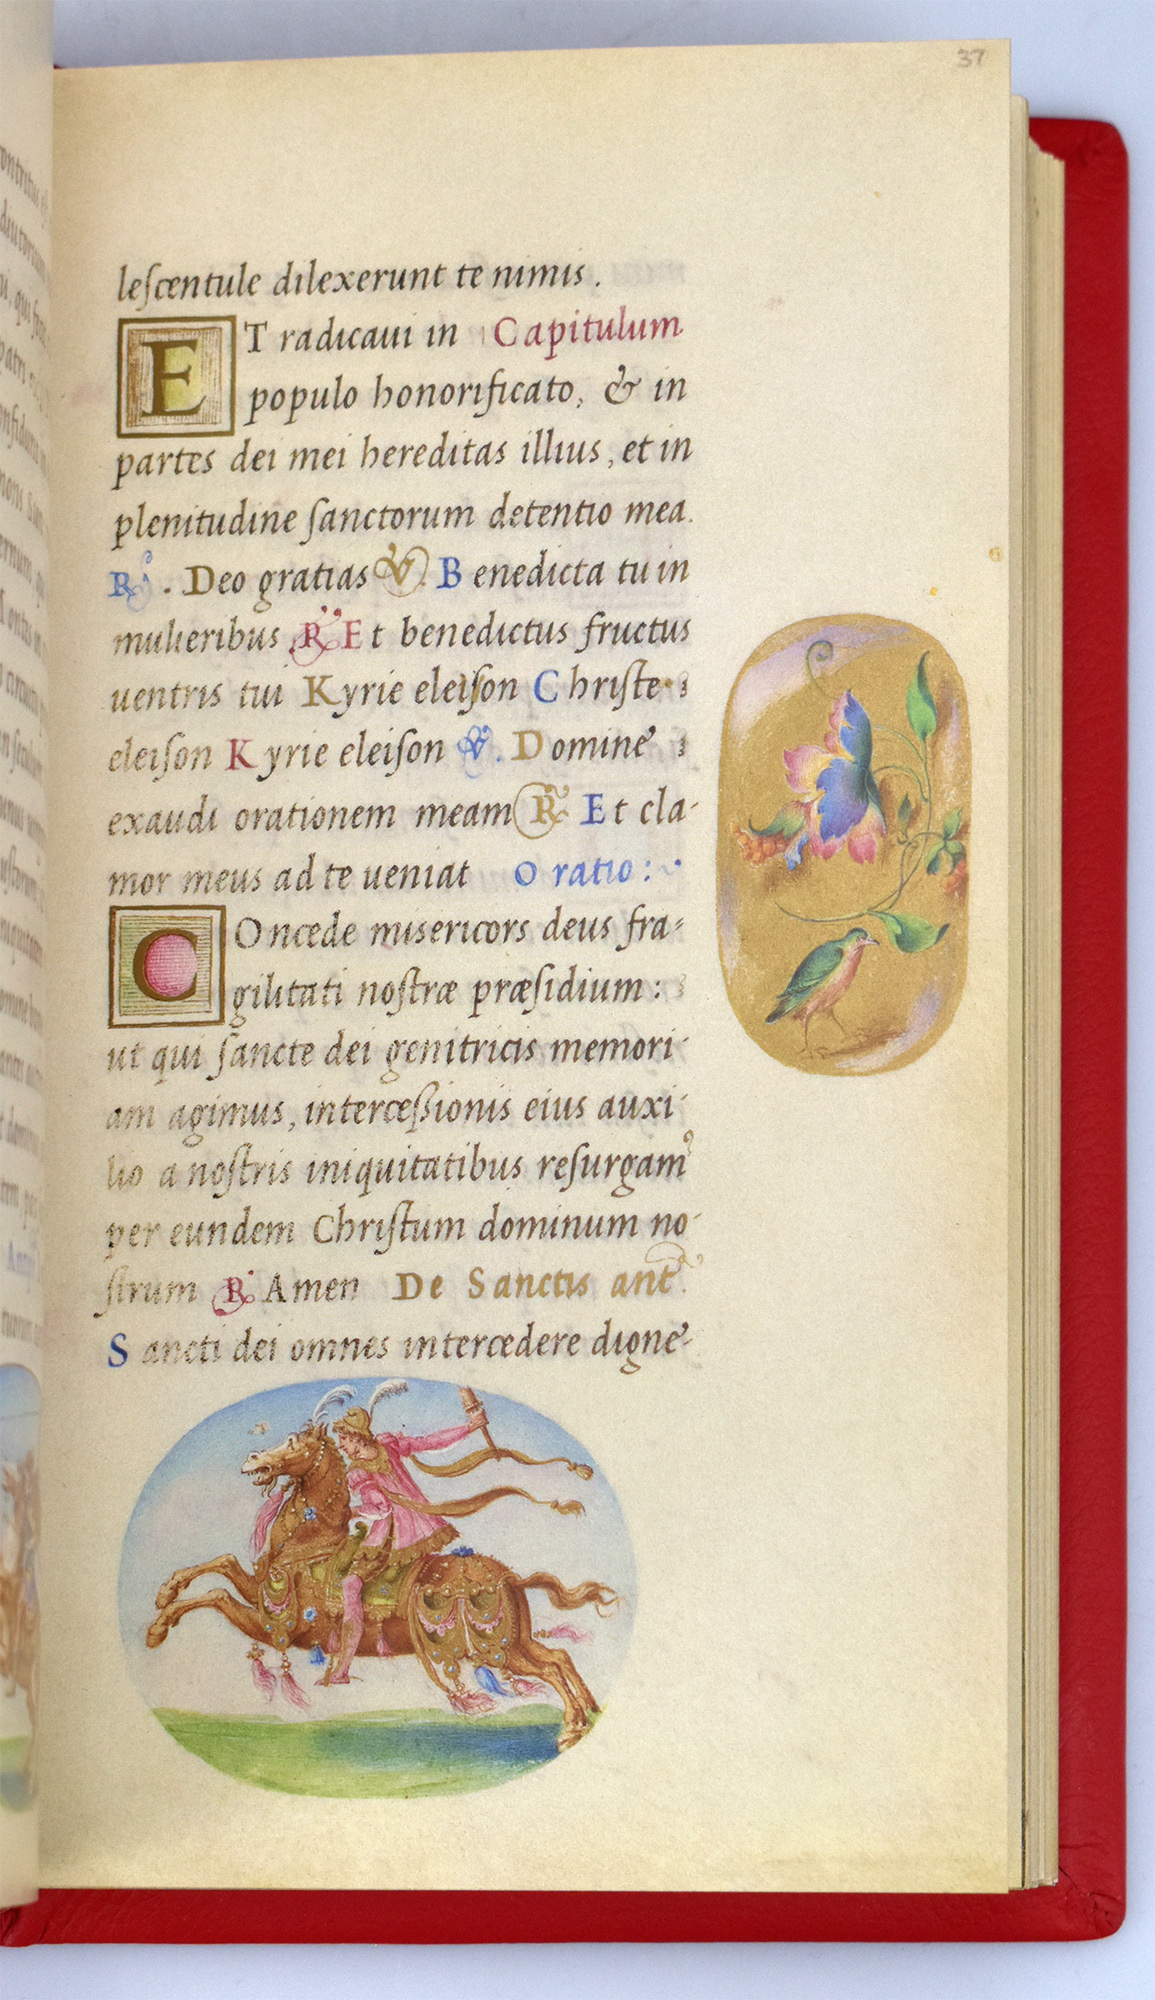 37
leſcentule dilexerunt te nimis.
ET radicaui in Capitulum
populo honorificato, & in
partes dei mei hereditas illius, et in
plenitudine ſanctorum detentio mea.
R. Deo gratias V. Benedicta tu in
mulieribus R Et benedictus fructus
uentris tui Kyrie eleiſon Chriſte
eleiſon Kyrie eleiſon V. Domine
exaudi orationem meam R Et cla-
mor meus ad te ueniat Oratio:
COncede misericors deus fra-
gilitati noſtræ præſidium:
ut qui ſancte dei genitricis memori-
am agimus, interceſsionis eius auxi-
lio a noſtris iniquitatibus reſurgam9
per eundem Chriſtum dominum no-
ſtrum R Amen De Sanctis ant.
Sancti dei omnes intercedere digne-